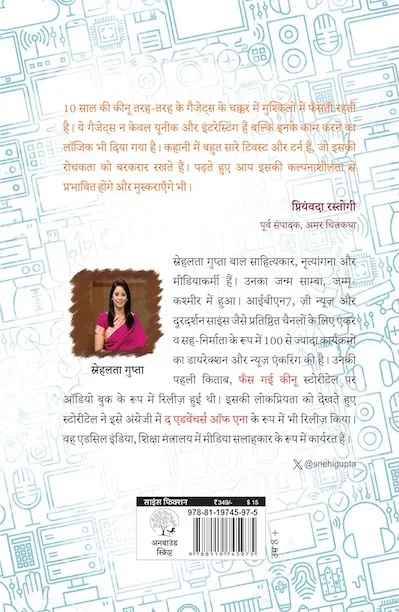 10 साल की कीनू तरह-तरह के गैजेट्स के चक्कर में मुश्किलों में फँसती रहती
है। ये गैजेट्स न केवल यूनीक और इंटरेस्टिंग हैं बल्कि इनके काम करने का
लॉजिक भी दिया गया है। कहानी में बहुत सारे टिवस्ट और टर्न हैं, जो इसकी
रोचकता को बरकरार रखते हैं। पढ़ते हुए आप इसकी कल्पनाशीलता से
प्रभावित होंगे और मुस्कराएँगे भी।
प्रियंवदा रस्तोगी
पूर्व संपादक, अमर चित्रकथा
स्नेहलता गुप्ता बाल साहित्यकार, नृत्यांगना और
मीडियाकर्मी हैं। उनका जन्म साम्बा, जम्मू-
कश्मीर में हुआ। आईबीएन7, ज़ी न्यूज़ और
दूरदर्शन साइंस जैसे प्रतिष्ठित चैनलों के लिए एंकर
व सह-निर्माता के रूप में 100 से ज्यादा कार्यक्रमों
का डायरेक्शन और न्यूज़ एंकरिंग की है। उनकी
पहली किताब, फँस गई कीनू स्टोरीटेल पर
ऑडियो बुक के रूप में रिलीज़ हुई थी। इसकी लोकप्रियता को देखते हुए
स्टोरीटेल ने इसे अंग्रेजी में द एडवेंचर्स ऑफ एना के रूप में भी रिलीज़ किया।
वह एडसिल इंडिया, शिक्षा मंत्रालय में मीडिया सलाहकार के रूप में कार्यरत हैं।
स्नेहलता गुप्ता
X @snehigupta
साइंस फिक्शन ₹349/- $15
978-81-19745-97-5
अनबाउंड
स्क्रिप्ट
9 788119 745975
उम्र 8+